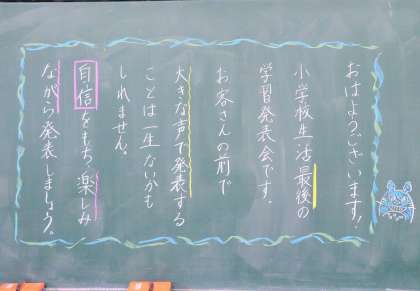 おはようございます！
小学校生活最後の
学習発表会です。
お客さんの前で
大きな声で発表する
ことは一生ないかも
しれません。
自信をもち、楽しみ
ながら発表しましょう。